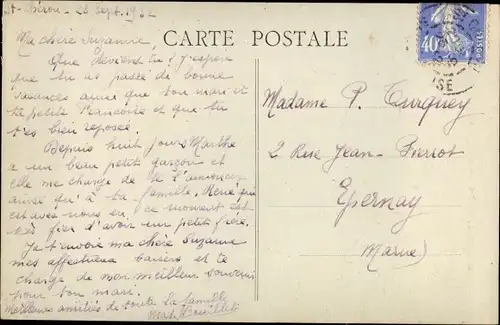 St-Thérou - 28 Sept. 1932
CARTE POSTALE
Ma chère Suzanne,
Que deviens-tu ? J'espère
que tu as passé de bonne
vacances ainsi que ton mari et
ta petite Francoise et que tu
t'es bien reposée.
Depuis huit jours Marthe
a un beau petit garçon et
elle me charge de te l'annoncer
ainsi qu'à ta famille. René qui
est avec nous en ce moment est
très fier d'avoir un petit frère.
Je t'envoie ma chère Suzanne
mes affectueux baisers et te
charge de mon meilleur souvenir
pour ton mari.
Meilleures amitiés de toute la famille
40
Madame P. Turquey
2 Rue Jean-Pierrot
Epernay
Marne